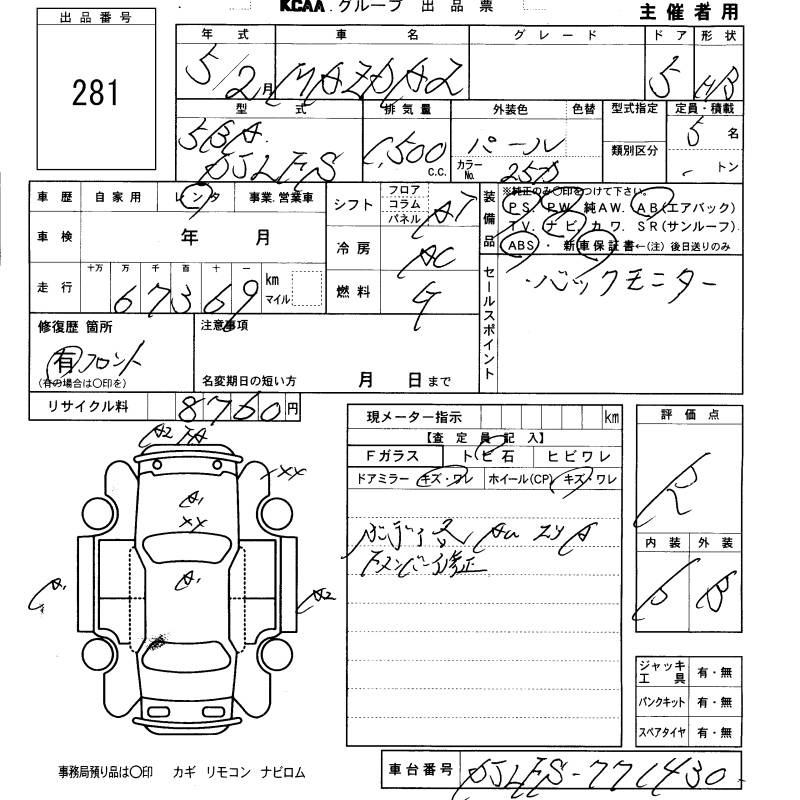 KCAA グループ 出品票
主催者用
出品番号
281
年式 車名 グレード ドア 形状
5/2月 MAZDA2 5 HB
型式 排気量 外装色 色替 型式指定 定員・積載
5BA. 1,500 c.c. パール 5 名
DJLFS カラーNo. 25D 類別区分 トン
車歴 自家用 レンタ 事業.営業車
車検 年 月
走行 十万 万 千 百 十 一 km マイル
67369
シフト フロア コラム パネル AT
冷房 AC
燃料 G
装備品 ※純正のみ○印をつけて下さい。
PS. PW. 純AW. AB(エアバック)
TV. ナビ カワ. SR(サンルーフ)
ABS・新車保証書←(注) 後日送りのみ
セールスポイント
・バックモニター
修復歴 箇所
有 フロント
(有の場合は○印を)
注意事項
名変期日の短い方 月 日まで
リサイクル料 8760円
A2
A1
XX
XX
A1
A1
A2
現メーター指示 km
【査定員記入】
Fガラス トビ石 ヒビワレ
ドアミラー キズ・ワレ ホイール(CP) キズ・ワレ
Fメンバー修正
評価点
R
内装 外装
B
ジャッキ工具 有・無
パンクキット 有・無
スペアタイヤ 有・無
事務局預り品は○印 カギ リモコン ナビロム
車台番号 DJLFS-771430